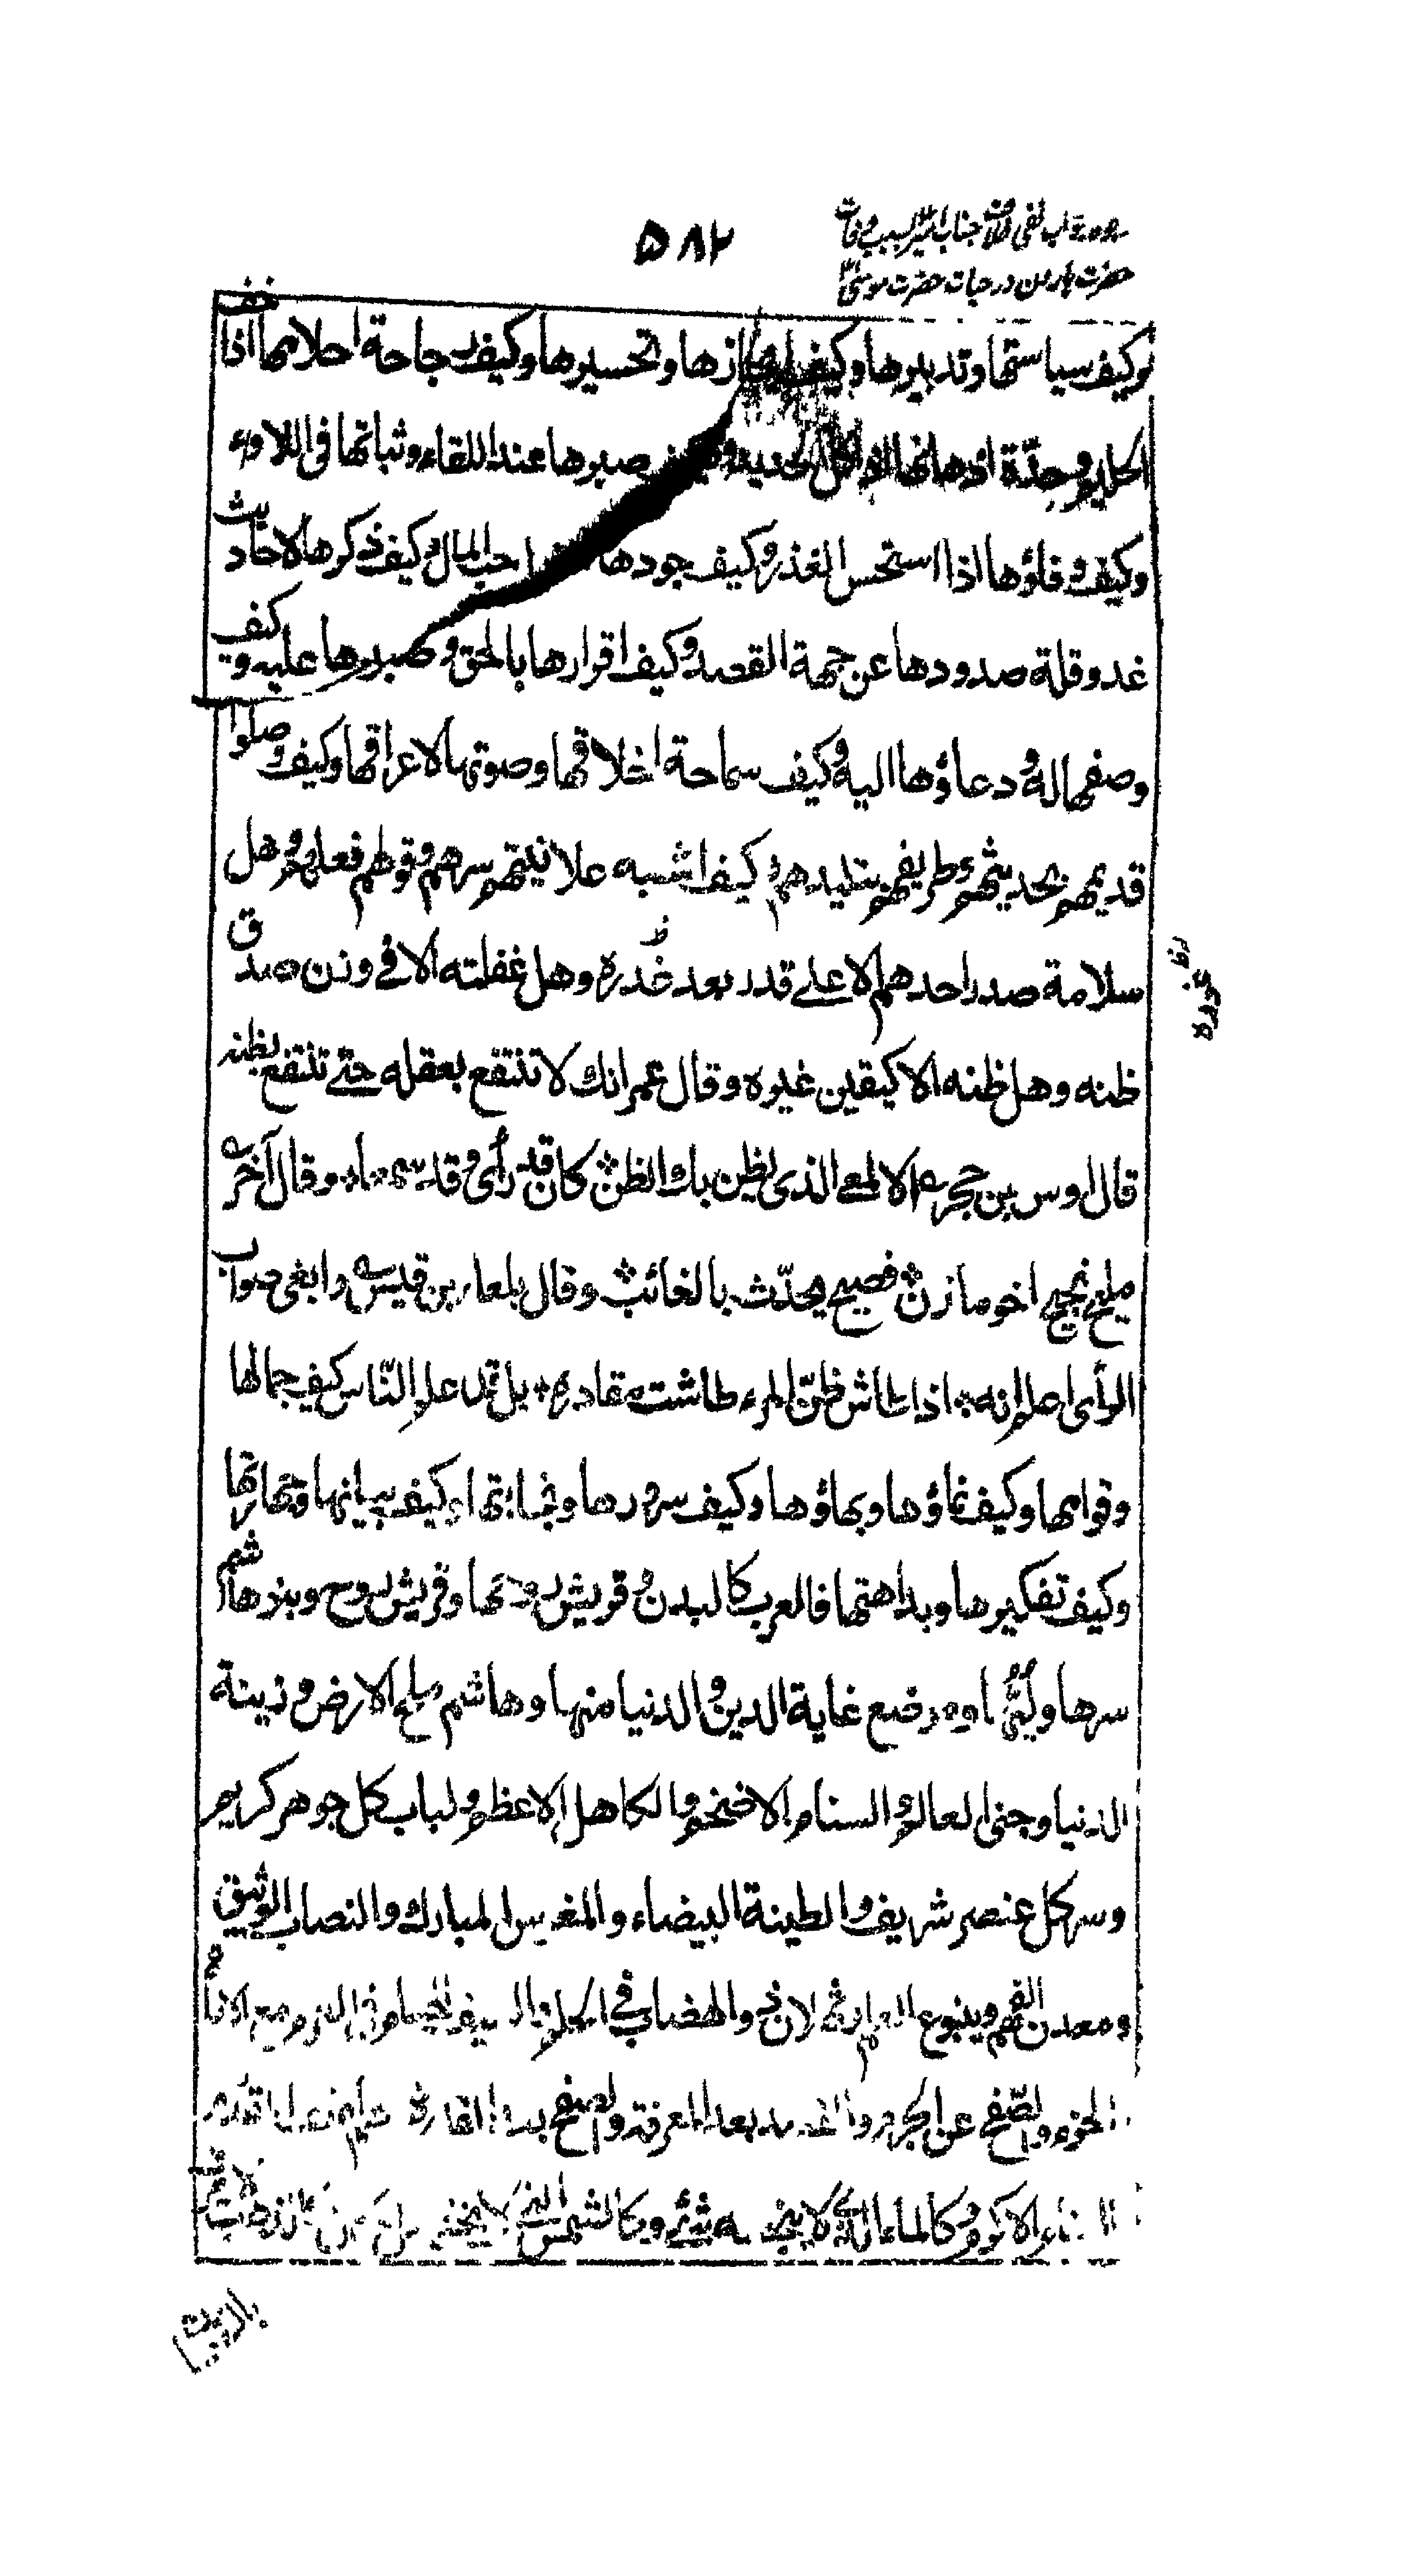 ۵۸۲
حضرت هارون در حیات حضرت موسی
وكيف سياستها وتدبيرها وكيف ايجازها وتحسيرها وكيف رجاحة احلامها اذا خف
الحليم وحدّة اذهانها اذا كل الحديد وكيف صبرها عند اللقاء وثباتها فى اللاواء
وكيف وفاؤها اذا استحس الغدر وكيف جودها اذا حب المال وكيف ذكرها لاحاديث
غد وقلة صدودها عن جهة القصد وكيف اقرارها بالحق وصبرها عليه وكيف
وصفها له ودعاؤها اليه وكيف سماحة اخلاقها وصونها لاعراقها وكيف وصلوا
قديمهم بحديثهم وطريفهم بتليدهم وكيف اشبه علانيتهم سرهم وقولهم فعلهم وهل
سلامة صدر احدهم الا على قدر بعد غدره وهل غفلته الا فى وزن صدق
ظنه وهل ظنه الا كيقين غيره وقال عمر انك لا تنتفع بعقله حتى تنتفع بظنه
قال اوس بن حجر الالمعى الذى يظن بك الظن كان قد رأى وقد سمعا وقال آخر
مليح نجيح اخو مازن فصيح يحدّث بالغائب وقال بلعاء بن قيس وابغى صواب
الرأى اعلم انه اذا طاش ظنّ المرء طاشت مقادره بل قد علم النّاس كيف جمالها
وقوامها وكيف نماؤها وبهاؤها وكيف سرورها ونجابتها وكيف بيانها وجهارتها
وكيف تفكيرها وبداهتها فالعرب كالبدن وقريش روحها وقريش روح وبنو هاشم
سرها ولبّها وموضع غاية الدين والدنيا منها وهاشم ملح الارض وزينة
الدنيا وحنى العالم والسنام الافخم والكاهل الاعظم ولباب كل جوهر كريم
وسر كل عنصر شريف والطينة البيضاء والمغرس المبارك والنصاب الوثيق
ومعدن الفهم وينبوع العلم وثهلان ذو الهضاب فى الحلم والسيف الحسام فى العزم مع الاناة
والحزم والصّفح عن الجرم والقصد بعد المعرفة والصفح بعد المقدرة
الاكرم وكالماء الذى لا ينجسه شئ وكالشمس التى لا يخفى